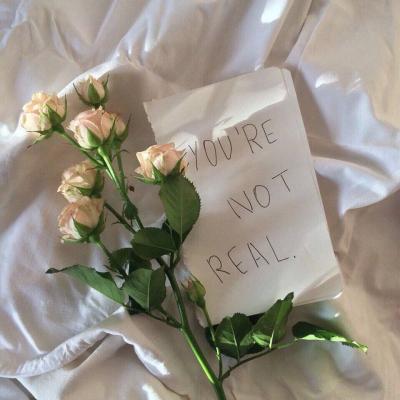 YOU'RE
NOT
REAL.